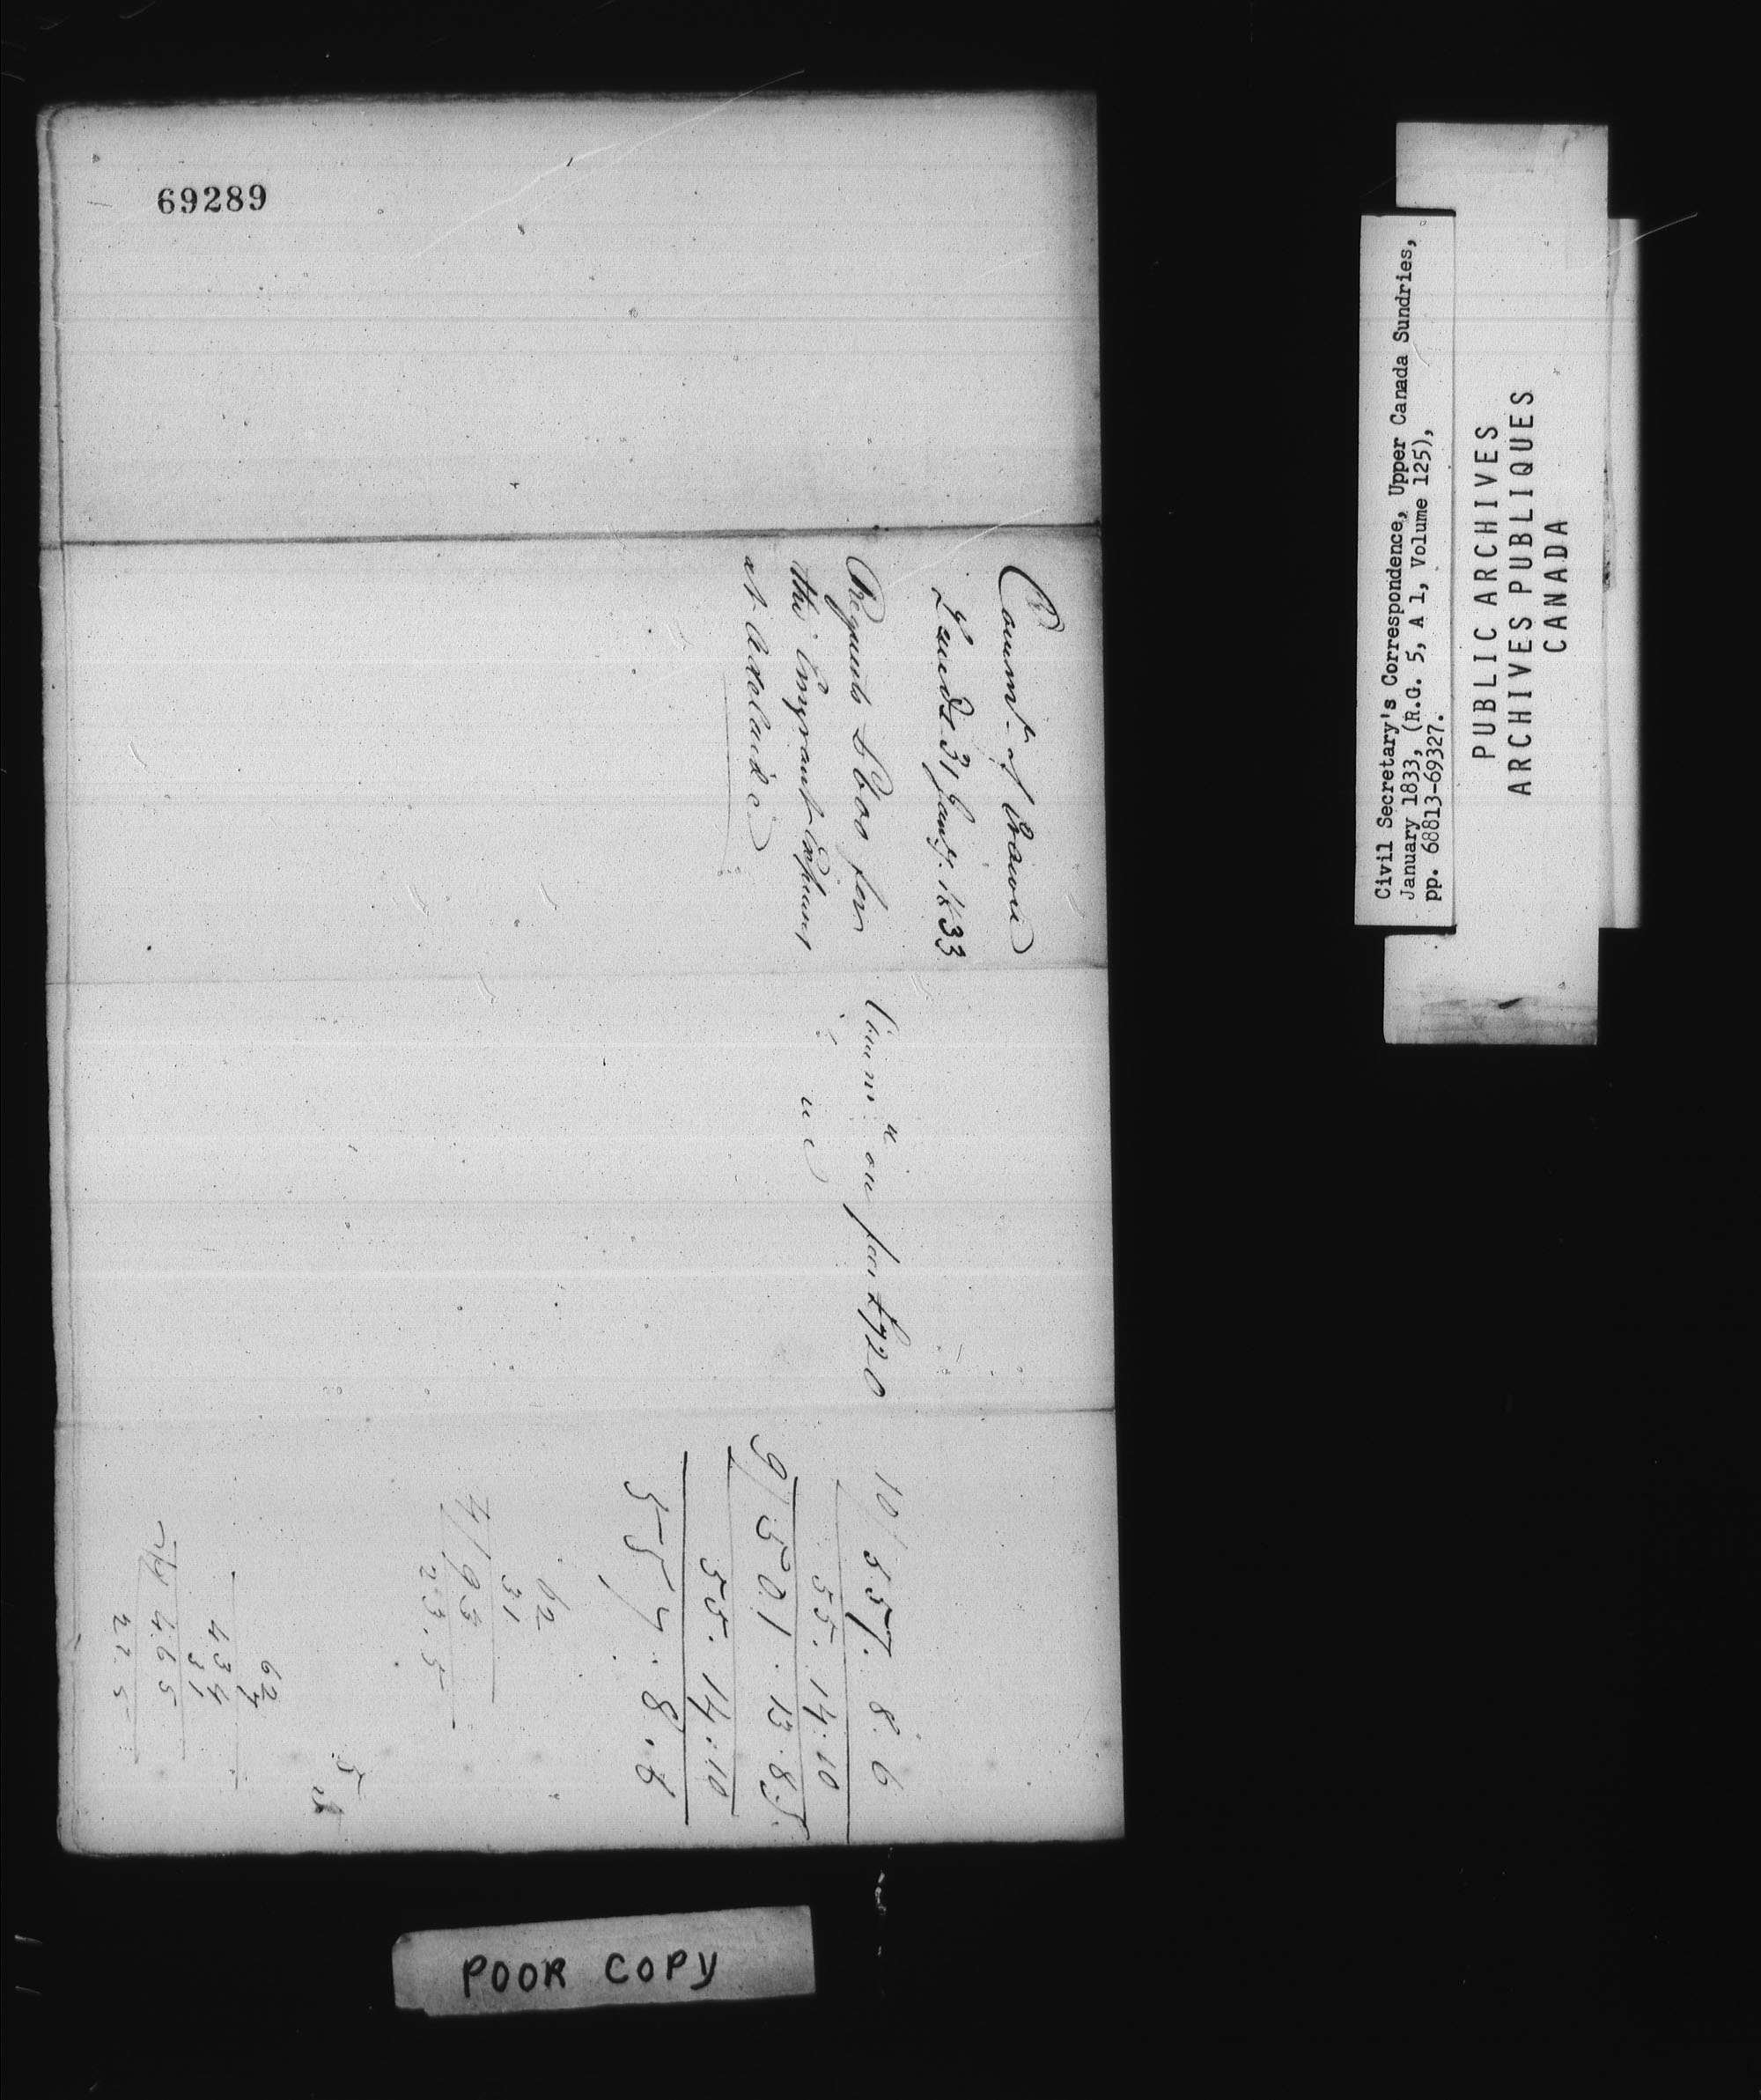 69289
Commr. of Crown
Lands 31 Jany. 1833
Requests £600 for
the Emigrant Expenses
at Adelaide
on for £720
10) 557. 8. 6
55. 14. 10
9) 501. 13. 8
55. 14. 10
557. 8. 6
62
31
4) 93
23. 5
62
434
31
465
5
Civil Secretary's Correspondence, Upper Canada Sundries,
January 1833, (R.G. 5, A 1, Volume 125),
pp. 68813-69327.
PUBLIC ARCHIVES
ARCHIVES PUBLIQUES
CANADA
POOR COPY